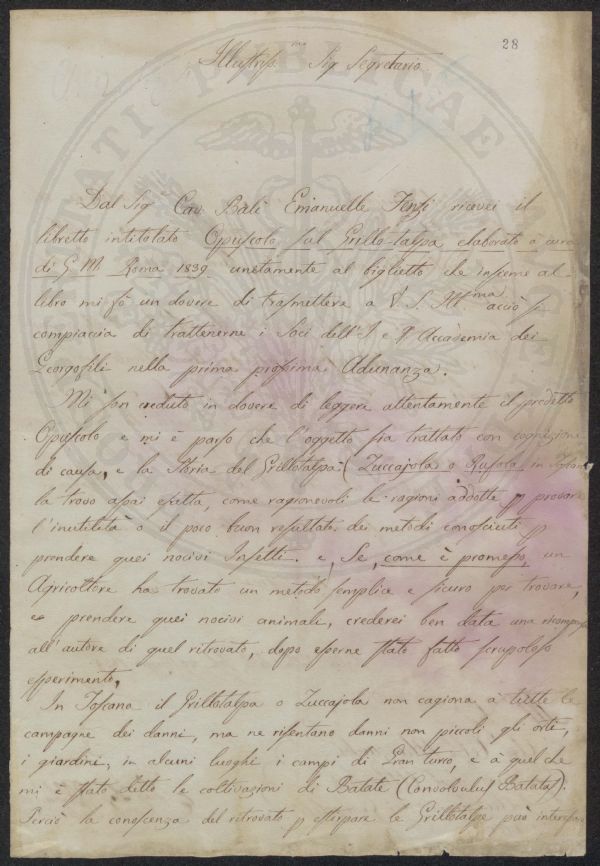 28
Illustriss.mo Sig. Segretario
Dal Sig. Cav. Balì Emanuelle Fenzi ricevei il
libretto intitolato Opuscolo sul Grillo-talpa elaborato à cura
di G. M. Roma 1839 unitamente al biglietto che insieme al
libro mi fò un dovere di trasmettere a V. S. Ill.ma acciò si
compiaccia di trattenerne i Soci dell'I. e R. Accademia dei
Georgofili nella prima prossima Adunanza.
Mi son creduto in dovere di leggere attentamente il predetto
Opuscolo e mi è parso che l'oggetto sia trattato con cognizione
di causa, e la Storia del Grillotalpa (Zuccajola o Rufola, in
la trovo assai esatta, come ragionevoli le ragioni addotte p provare
l'inutilità o il poco buon resultato dei metodi conosciuti p
prendere quei nocivi Insetti. e, Se, come è promesso, un
Agricoltore ha trovato un metodo semplice e sicuro per trovare,
e prendere quei nocivi animale, crederei ben data una ricompensa
all'autore di quel ritrovato, dopo esserne stato fatto scrupoloso
esperimento.
In Toscana il Grillotalpa o Zuccajola non cagiona à tutte le
campagne dei danni, ma ne risentano danni non piccoli gli orti,
i giardini, in alcuni luoghi i campi di Gran turco, e à quel che
mi è stato detto le coltivazioni di Batate (Convolvulus Batatas).
Perciò la conoscenza del ritrovato p estirpare le Grillotalpe può